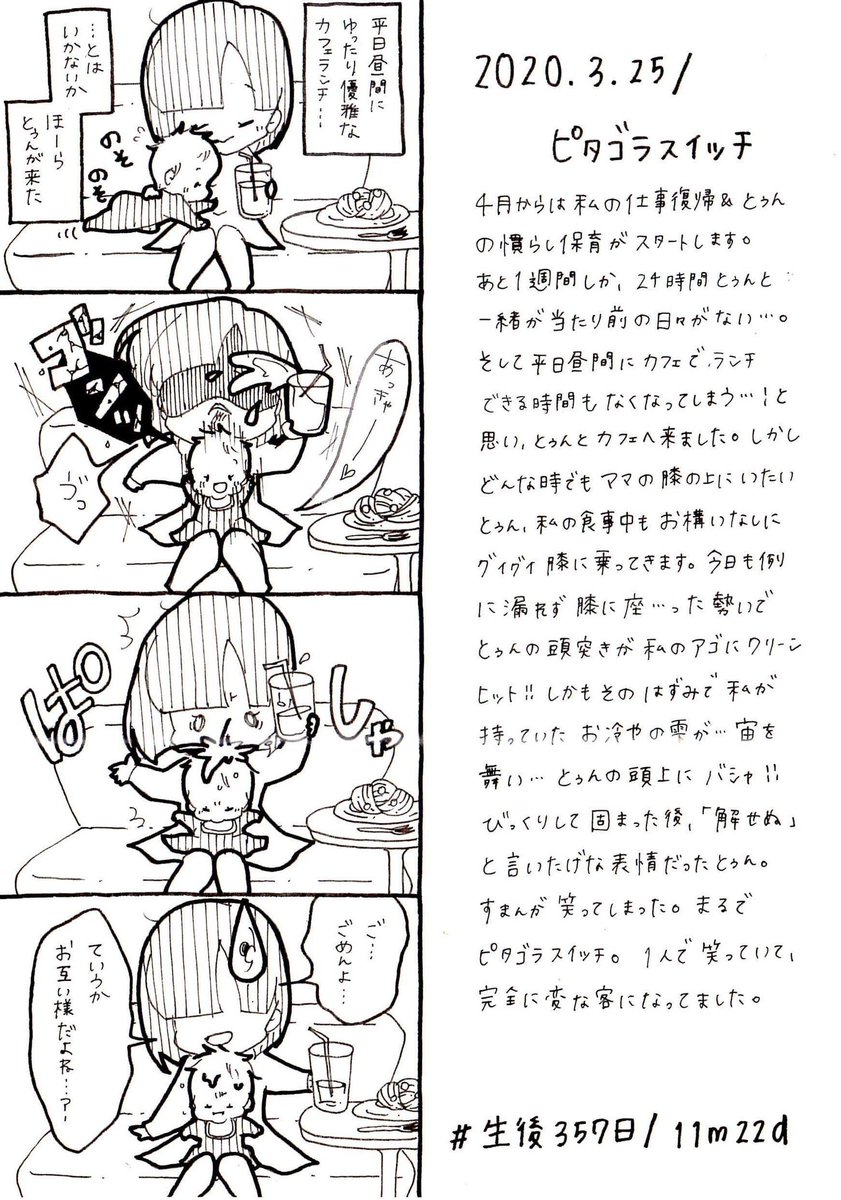 平日昼間に
ゆったり優雅な
カフェランチ…
…とは
いかないか
ほーら
とぅんが来た
のそ
のそ
ゴンッ
あっきゃ♡
ゔっ
ぱしゃ
ご…
ごめんよ…
ていうか
お互い様だよね…?
2020.3.25/
ピタゴラスイッチ
4月からは私の仕事復帰&とぅん
の慣らし保育がスタートします。
あと1週間しか、24時間とぅんと
一緒が当たり前の日々がない…。
そして平日昼間にカフェでランチ
できる時間もなくなってしまう…!と
思い、とぅんとカフェへ来ました。しかし
どんな時でもママの膝の上にいたい
とぅん、私の食事中もお構いなしに
グイグイ膝に乗ってきます。今日も例
に漏れず膝に座…った勢いで
とぅんの頭突きが私のアゴにクリーン
ヒット!!しかもそのはずみで私が
持っていたお冷やの雫が…宙を
舞い…とぅんの頭上にバシャ!!
びっくりして固まった後、「解せぬ」
と言いたげな表情だったとぅん。
すまんが笑ってしまった。まるで
ピタゴラスイッチ。1人で笑っていて、
完全に変な客になってました。
#生後357日/11m22d